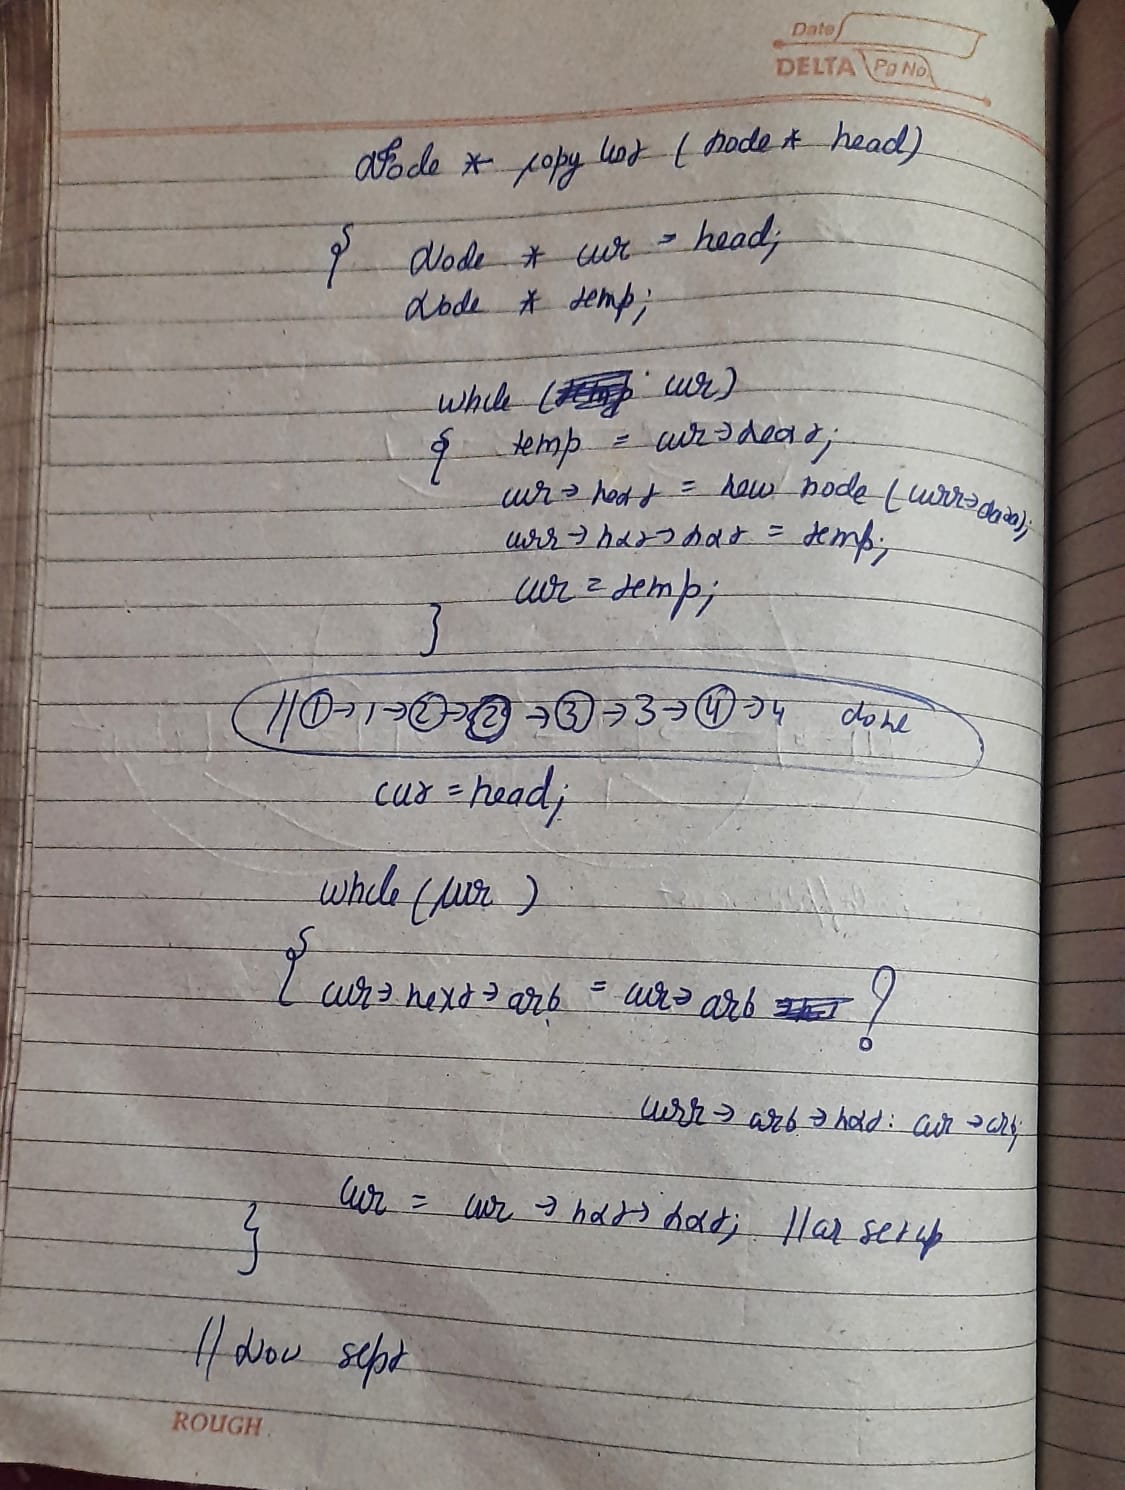 Date
DELTA Pg No.
Node * copy list (node * head)
{ Node * curr = head;
Node * temp;
while (curr)
{ temp = curr->next;
curr->next = new node (curr->data);
curr->next->next = temp;
curr = temp;
}
//①->1->②->②->③->3->④->4 done
cur = head;
while (curr)
{ curr->next->arb = curr->arb ?
curr->arb->next: curr->arb;
curr = curr->next->next; //ar setup
}
//Now sept
ROUGH